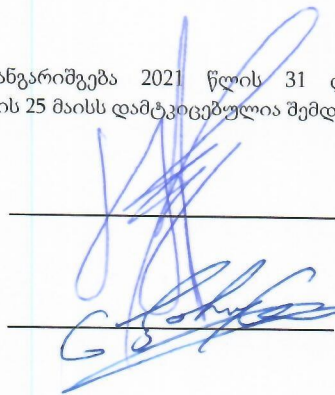 ანგარიშგება 2021 წლის 31
ის 25 მაისს დამტკიცებულია შემდ